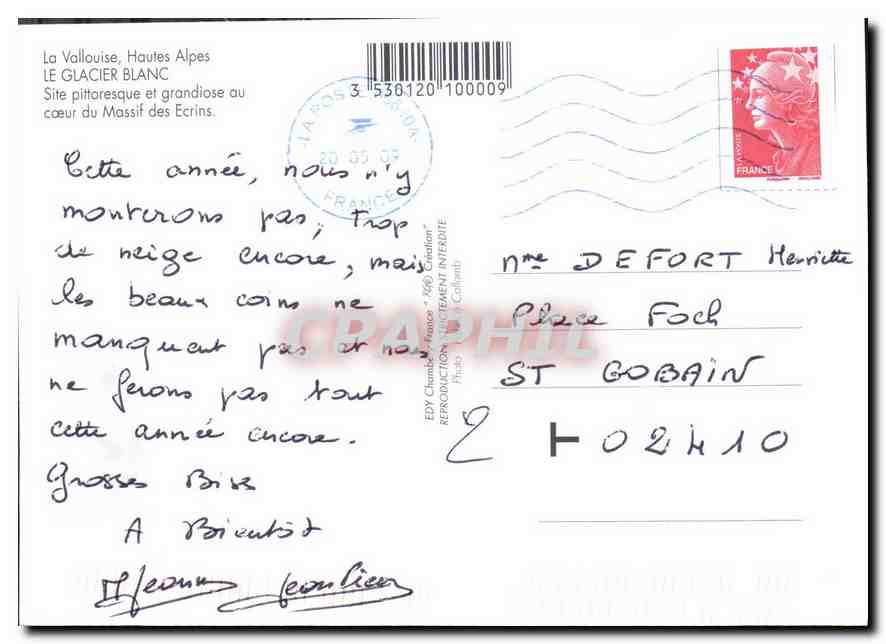 La Vallouise, Hautes Alpes
LE GLACIER BLANC
Site pittoresque et grandiose au
cœur du Massif des Ecrins.
3 530120 100009
LA POSTE
20 05 09
FRANCE
FRANCE
Cette année, nous n'y
monterons pas, Trop
de neige encore, mais
les beaux coins ne
manquent pas et nous
ne ferons pas tout
cette année encore.
Grosses Bises
A Bientôt
MJeanne Jean Pierre
EDY Chambéry France " Création"
REPRODUCTION STRICTEMENT INTERDITE
Photo Collomb
CPAPHIL
Mme DEFORT Henriette
Place Foch
ST GOBAIN
02410